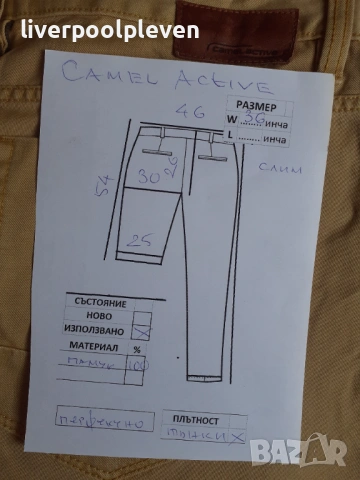 liverpoolpleven
camel active
CAMEL ACTIVE
46
РАЗМЕР
W ...36... инча
L ........ инча
СЛИМ
26
30
54
25
СЪСТОЯНИЕ
НОВО
ИЗПОЛЗВАНО X
МАТЕРИАЛ %
ПАМУК 100
ПЕРФЕКТНО
ПЛЪТНОСТ
ТЪНКИ X
BAZAR
bg